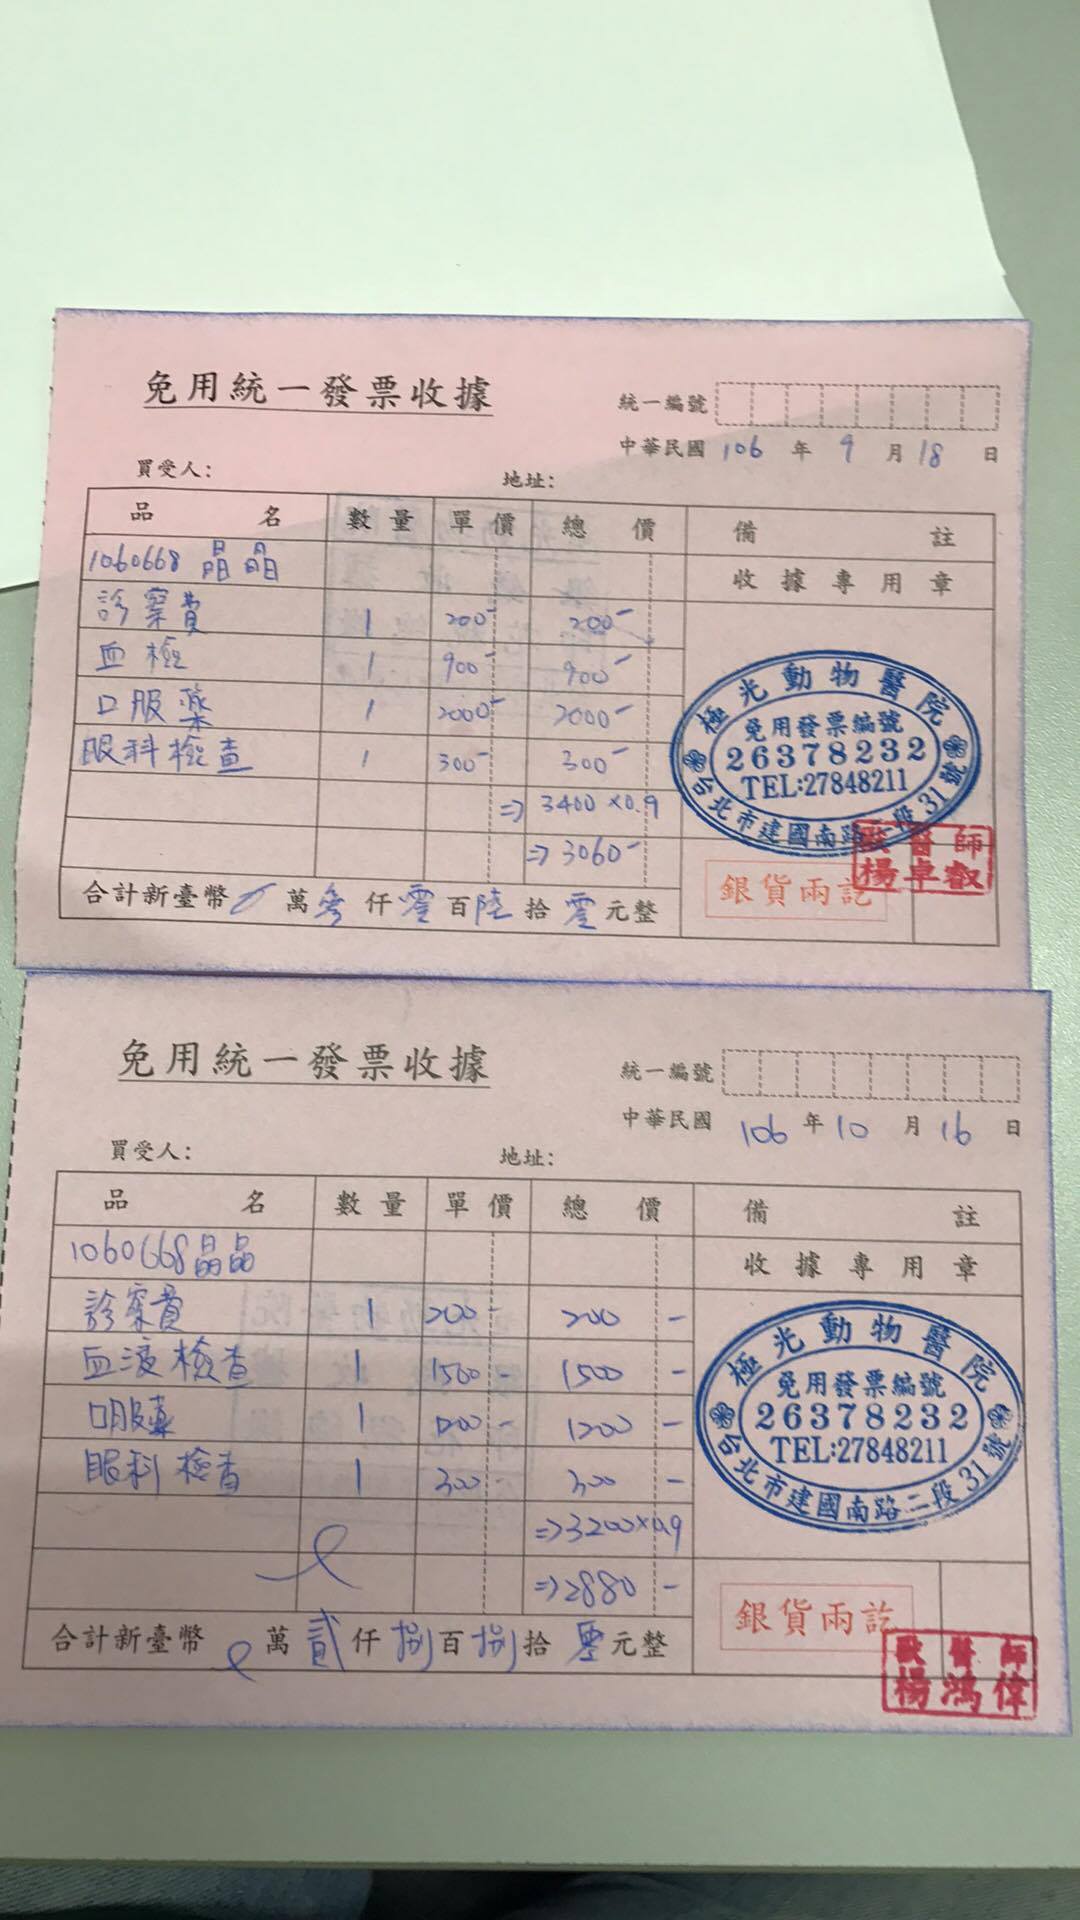 免用統一發票收據
統一編號
中華民國 106 年 9 月 18 日
買受人：
地址：
品名 數量 單價 總價 備註
1060668 晶晶
收據專用章
診察費 1 200- 200-
血檢 1 900- 900-
口服藥 1 2000- 2000-
眼科檢查 1 300- 300-
⇒ 3400×0.9
⇒ 3060-
極光動物醫院
免用發票編號
26378232
TEL:27848211
台北市建國南路二段31號
獸醫師
楊卓叡
銀貨兩訖
合計新臺幣 萬 參 仟 零 百 陸 拾 零 元整
免用統一發票收據
統一編號
中華民國 106 年 10 月 16 日
買受人：
地址：
品名 數量 單價 總價 備註
1060668 晶晶
收據專用章
診察費 1 200- 200-
血液檢查 1 1500- 1500
口服藥 1 1200- 1200-
眼科檢查 1 300- 300-
⇒3200×0.9
⇒2880-
極光動物醫院
免用發票編號
26378232
TEL:27848211
台北市建國南路二段31號
銀貨兩訖
獸醫師
楊鴻偉
合計新臺幣 萬 貳 仟 捌 百 捌 拾 零 元整